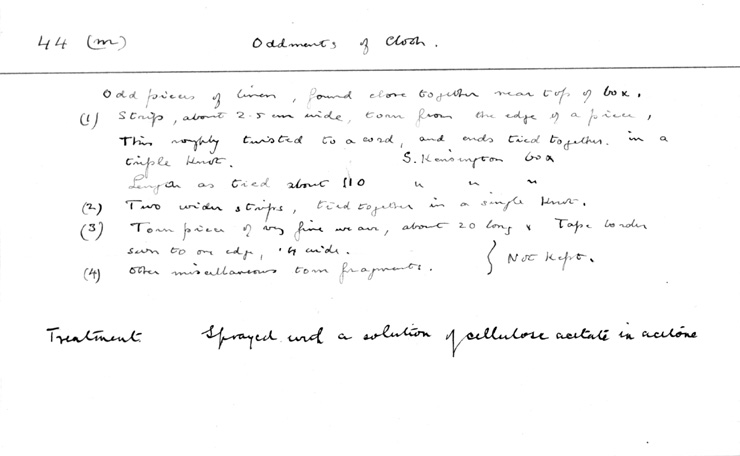 44 (m) Oddments of Cloth.
Odd pieces of linen, found close together near top of box.
(1) Strip, about 2.5 cm wide, torn from the edge of a piece,
This roughly twisted to a cord, and ends tied together. in a
triple knot. S. Kensington box
Length as tied about 110 " " "
(2) Two wider strips, tied together in a single knot.
(3) Torn piece of very fine weave, about 20 long x Tape border
sewn to one edge, .4 wide.
(4) Other miscellaneous torn fragments. } Not kept.
Treatment Sprayed with a solution of cellulose acetate in acetone